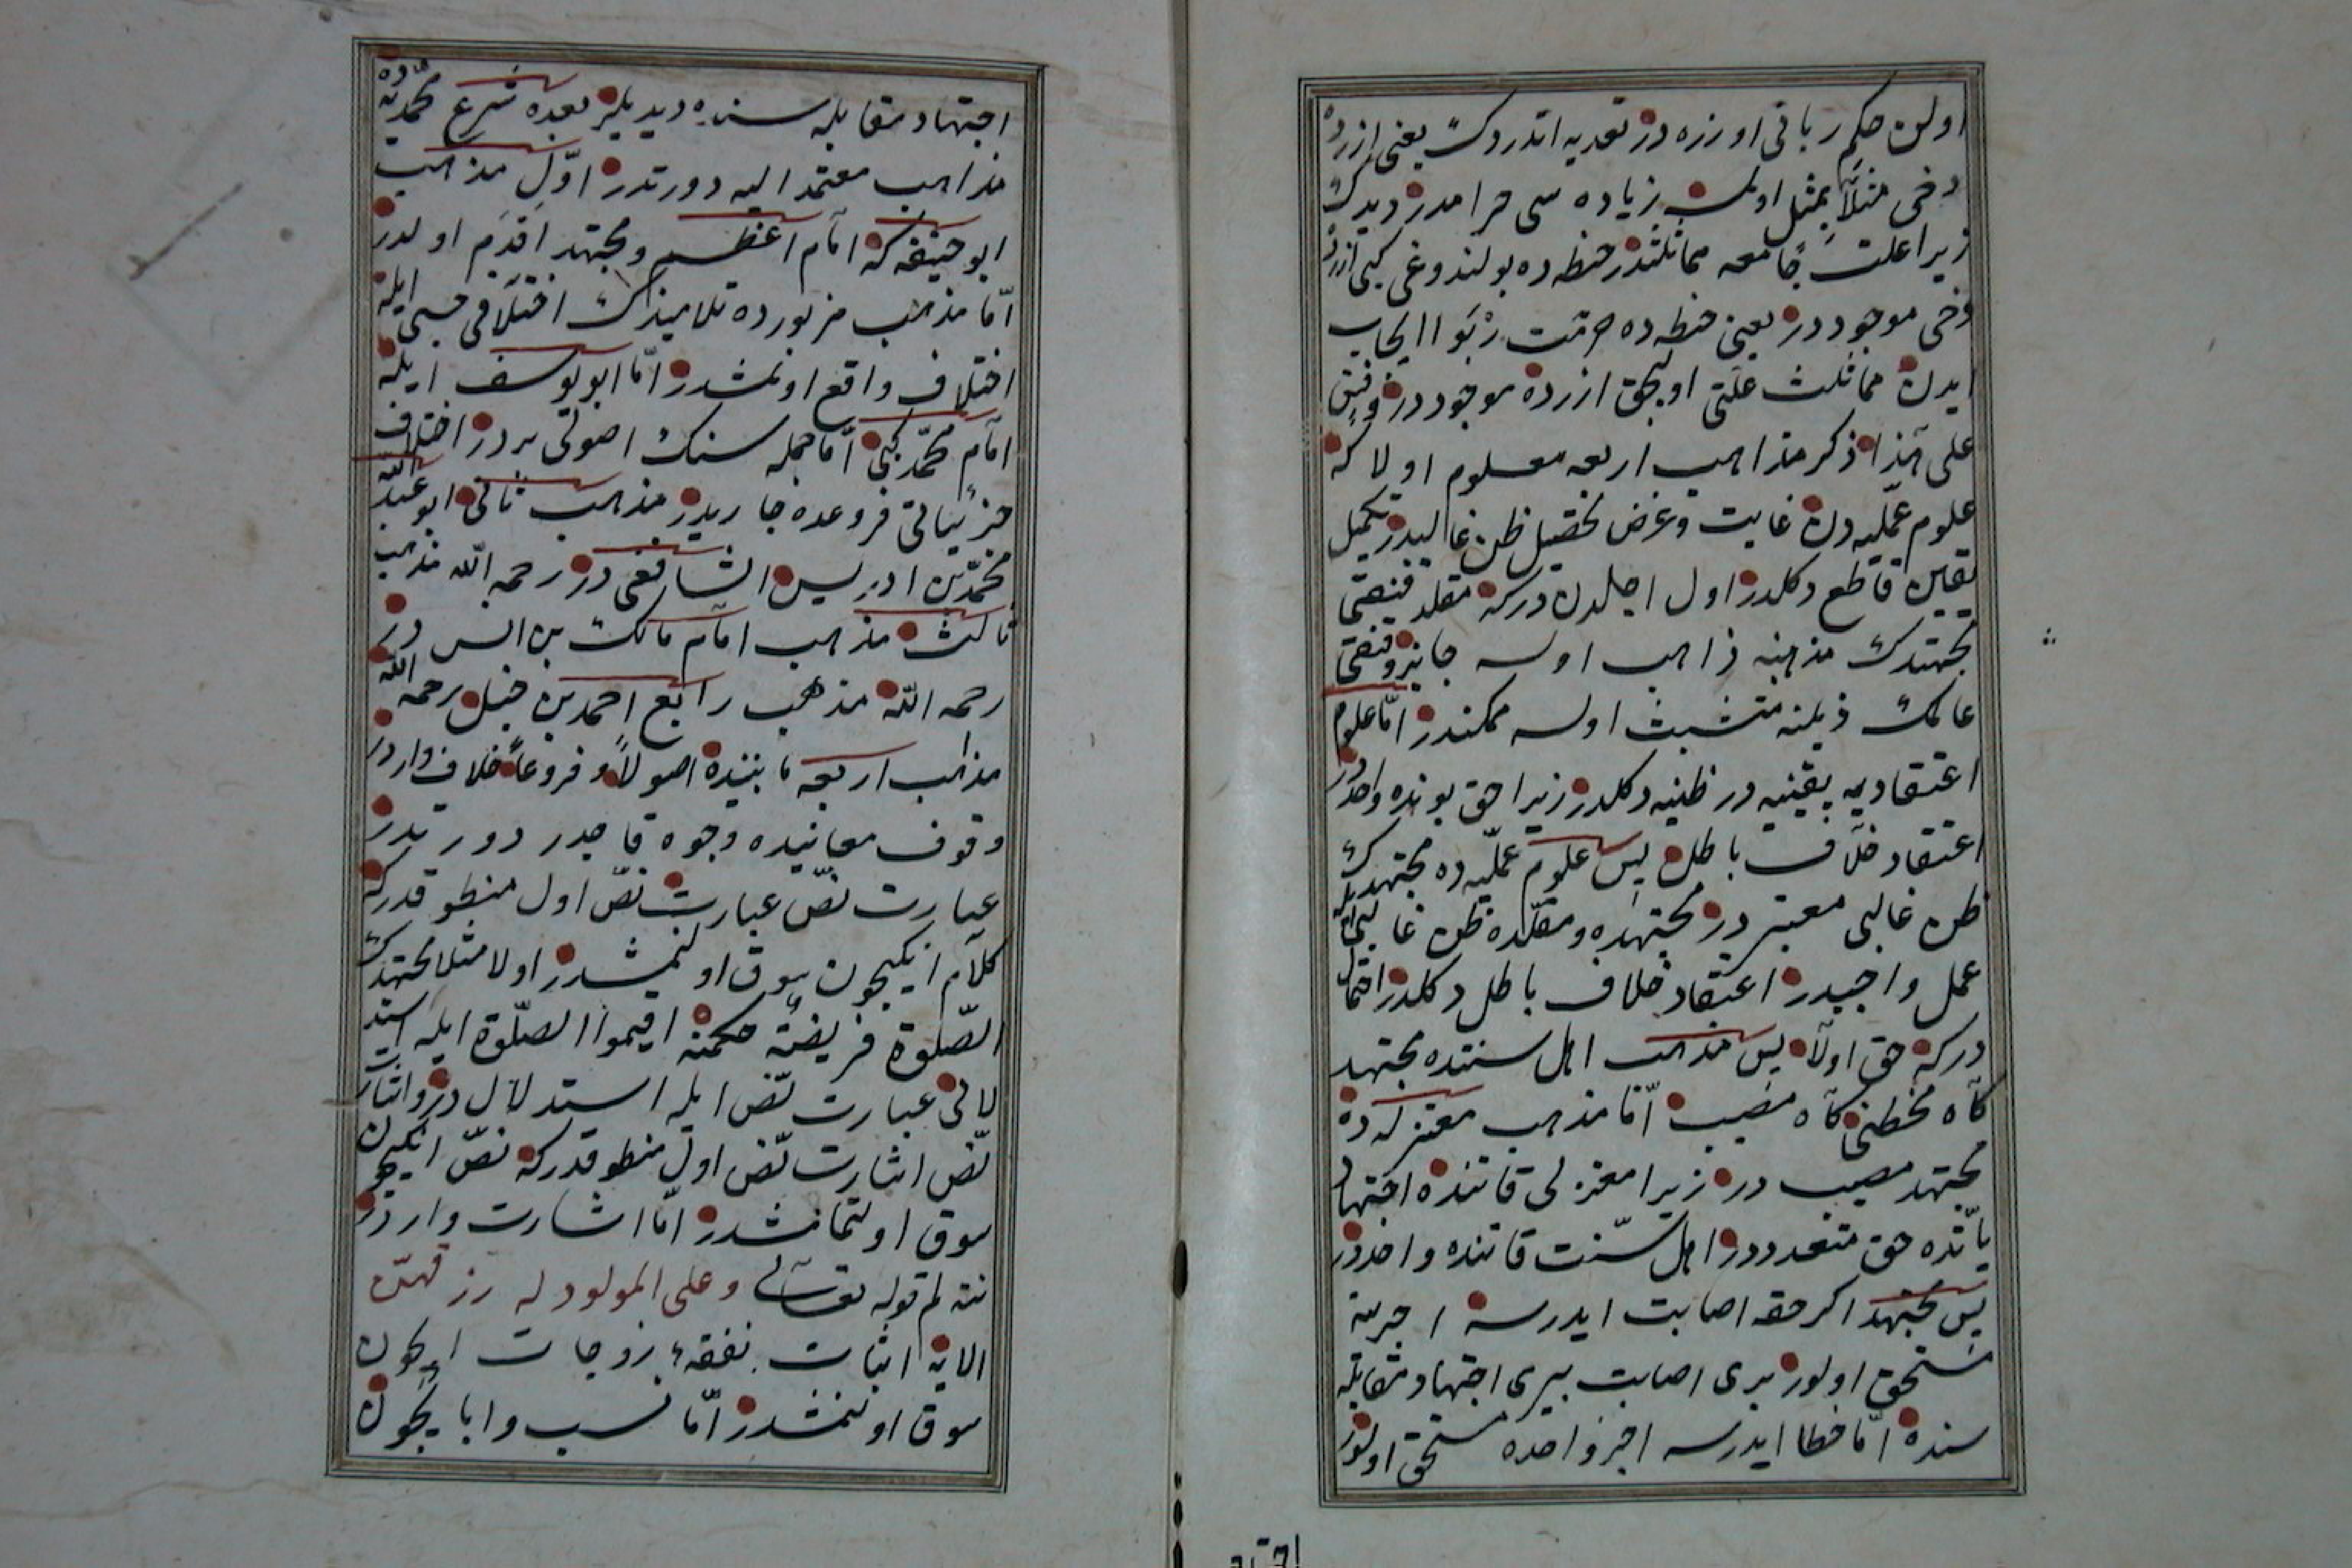 اولن حكم رباتى اوزره در تعديه اتدردك يعنى ارزده
دخى مثلاً بمثل اولسه زياده سى حرامدر ديدك
زيرا علت جامعه مماثلتدر حنطه ده بولندوغى كبى ارزده
دخى موجوددر يعنى حنطه ده حرمت ربوا ايجاب
ايدن مماثلت علتى اوليجق ارزده موجوددر وقس
على هذا ذكر مذاهب اربعه معلوم اولا كه
علوم عمليه دن غايت وغرض تحصيل ظن غالبدر تكميل
يقين قاطع دكلدر اول اجلدن دركه مقلد قنغى
مجتهدك مذهبنه ذاهب اولسه جائز وقنغى
عالمك ذيلنه متشبث اولسه ممكندر امّا علوم
اعتقاديه يقينيه در ظنيه دكلدر زيرا حق بونده واحددر
اعتقاد خلاف باطل پس علوم عمليه ده مجتهدك
ظن غالبى معتبر در مجتهده ومقلده ظن غالبى ايله
عمل واجبدر اعتقاد خلاف باطل دكلدر احتمال
دركه حق اولا پس مذهب اهل سنتده مجتهد
كاه مخطئ كاه مصيب امّا مذهب معتزله ده
مجتهد مصيب در زيرا معتزلى قاتنده اجتهاد
ياتده حق متعدددر اهل سنّت قاتنده واحددر
پس مجتهد اكر حقه اصابت ايدرسه اجرينه
مستحق اولور برى اصابت بيرى اجتهاد مقابله
سنده امّا خطا ايدرسه اجر واحده مستحق اولور
اجتهاد
اجتهاد مقابله سنده ديديلر بعده شرع محمديه ده
مذاهب معتمد اليه دورتدر اوّل مذهب
ابو حنيفه كه امام اعظم ومجتهد اقدم اولدر
امّا مذهب مزبورده تلاميذك اختلافى حسبى ايله
اختلاف واقع اولمشدر امّا ابو يوسف ايله
امام محمّد كبى امّا جمله سنك اصولى بردر اختلاف
جزئياتى فروعده جاريدر مذهب ثانى ابو عبد الله
محمّد بن ادريس الشافعى در رحمه الله مذهب
ثالث مذهب امام مالك بن انس در
رحمه الله مذهب رابع احمد بن حنبل رحمه الله
مذاهب اربعه مابينده اصولاً وفروعاً خلاف واردر
وقوف معانيده وجوه قاصدر دورتدر
عبارت نصّ عبارت نصّ اول منطوقدركه
كلام انكيچون سوق اولنمشدر اولا مثلا مجتهدك
الصّلوة فريضة حكمنه اقيموا الصّلوة ايله استد
لالى عبارت نصّ ايله استدلال در واشارت
نصّ اشارت نصّ اول منطوقدركه نصّ انكيچون
سوق اولنمامشدر امّا اشارت واردر
نته لم قوله تعالى وعلى المولود له رزقهنّ
الايه اثبات نفقهء زوجات ايچون
سوق اولنمشدر امّا نسب وابا يچون